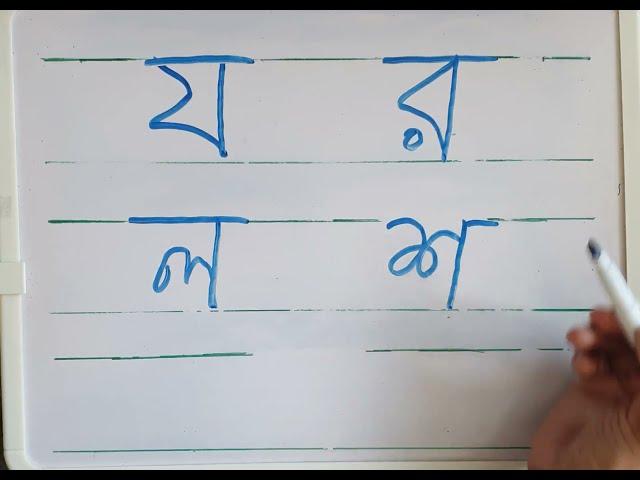 য র
ল শ